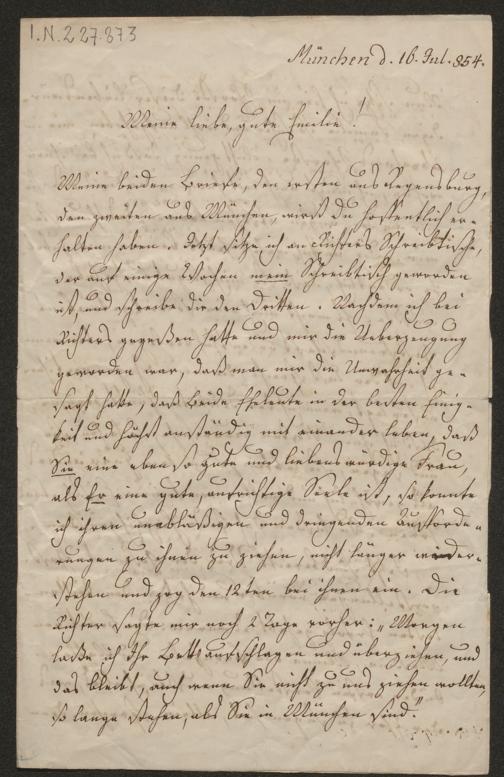 I.N. 227.873
München d. 16. Jul. 854.
Meine liebe, gute Emilie!
Meine beiden Briefe, den ersten aus Regensburg,
den zweiten aus München, wirst Du hoffentlich er-
halten haben. Jetzt sitze ich an Richters Schreibtische,
der auf einige Wochen mein Schreibtisch geworden
ist, und schreibe dir den Dritten. Nachdem ich bei
Richters gegeßen hatte und mir die Ueberzeugung
geworden war, daß man mir die Unwahrheit ge-
sagt hatte, daß beide Eheleute in der besten Einig-
keit und höchst anständig mit einander leben, daß
Sie eine eben so gute und liebenswürdige Frau,
als Er eine gute, aufrichtige Seele ist, so konnte
ich ihren unabläßigen und dringenden Aufforde-
rungen zu ihnen zu ziehen, nicht länger wieder-
stehen und zog den 12ten bei ihnen ein. Die
Richter sagte mir noch 2 Tage vorher: „Morgen
laße ich Ihr Bett aufschlagen und überziehen, und
das bleibt, auch wenn Sie nicht zu uns ziehen wollten,
so lange stehen, als Sie in München sind."